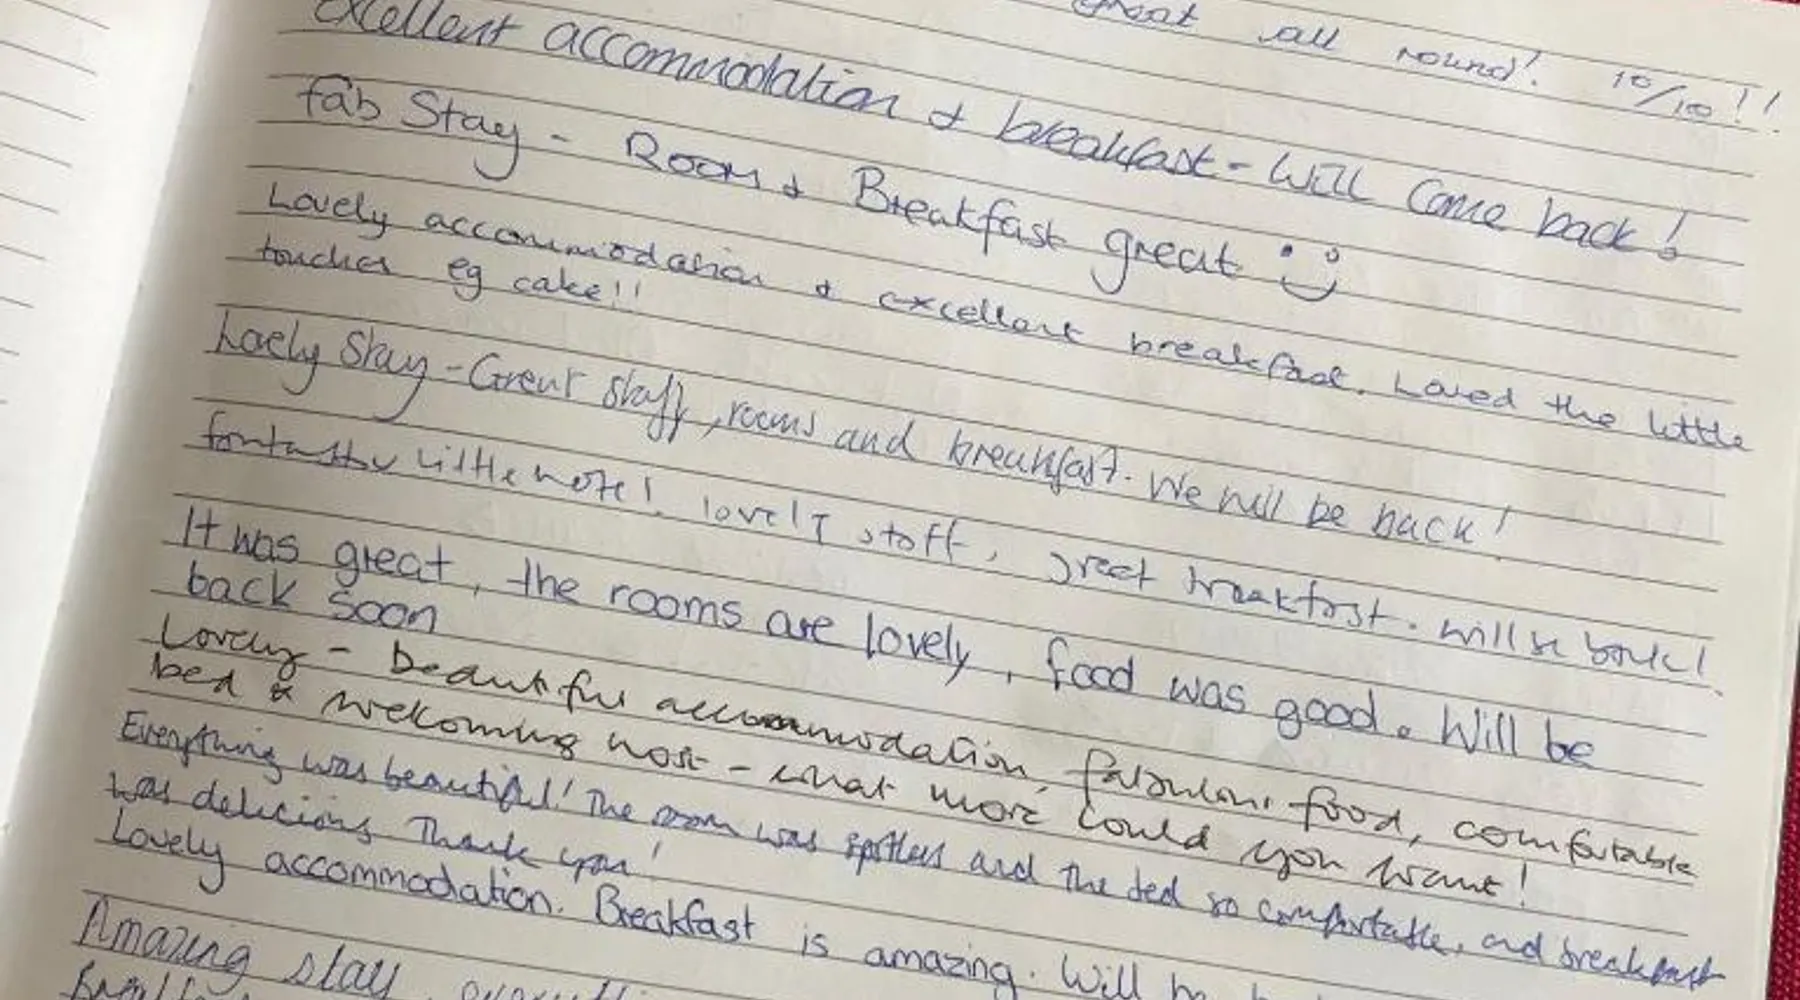 all round! 10/10!!
Excellent accommodation & breakfast - Will Come back!
fab Stay - Room & Breakfast great
Lovely accommodation & excellent breakfast. Loved the little
touches eg cake!!
Loely Stay - Great staff, rooms and breakfast. We will be back!
fantastic little hotel. lovely staff, great breakfast. will be back!
It was great, the rooms are lovely, food was good. Will be
back soon
Lovely - beautiful accommodation, fabulous food, comfortable
bed & welcoming host - what more could you want!
Everything was beautiful! The room was spotless and the bed so comfortable, and breakfast
was delicious Thank you!
Lovely accommodation. Breakfast is amazing. Will be
Amazing stay